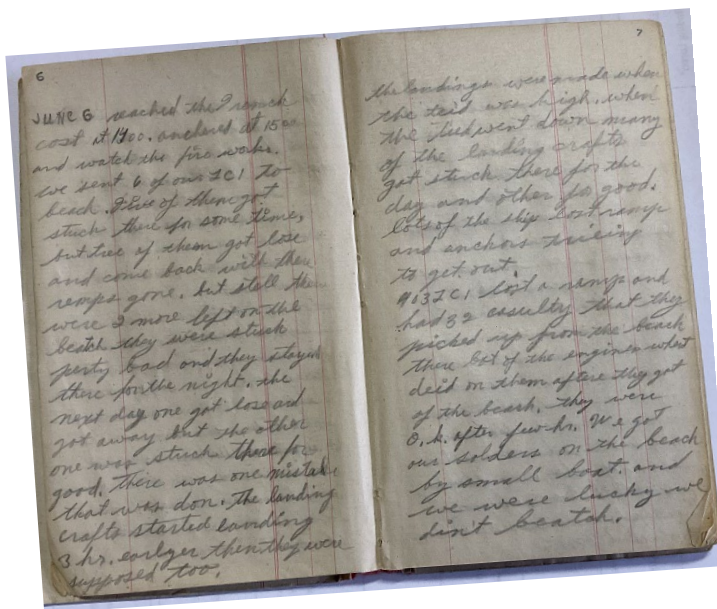 6
JUNE 6 reached the French
cost at 1400. anchered at 1500
and watch the fire works.
we sent 6 of our LCI to
beach. Five of them got
stuck there for some time,
but tree of them got lose
and come back with there
ramps gone. but stell there
were 2 more left on the
beatch they were stuck
perty bad and they stayed
there for the night. the
next day one got lose and
got away but the other
one was stuck there for
good. there was one mistake
that was don. the landing
crafts started landing
3 hr. earlyer then they were
supposed too.
7
the landings were made when
the teid was high. when
the teid went down many
of the landing crafts
got stuck there for the
day and other for good.
lots of the ship lost ramp
and anchors trieing
to get out.
413 LCI lost a ramp and
had 32 casulty that they
picked up from the beach
there lot of the engines whent
deid on them aftere they got
of the beach. they were
O.k. after few hr. We got
our solders on the beach
by small boat. and
we were lucky we
din't beatch.